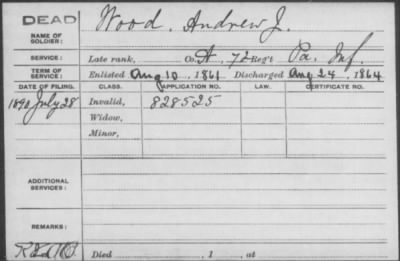 DEAD
NAME OF SOLDIER: Wood, Andrew J.
SERVICE: Late rank, Co. A, 72 Reg't Pa. Inf.
TERM OF SERVICE: Enlisted Aug 10, 1861 Discharged Aug 24, 1864
DATE OF FILING. CLASS. APPLICATION NO. LAW. CERTIFICATE NO.
1890 July 28 Invalid, 828525
Widow,
Minor,
ADDITIONAL SERVICES:
REMARKS:
Died , 1 , at